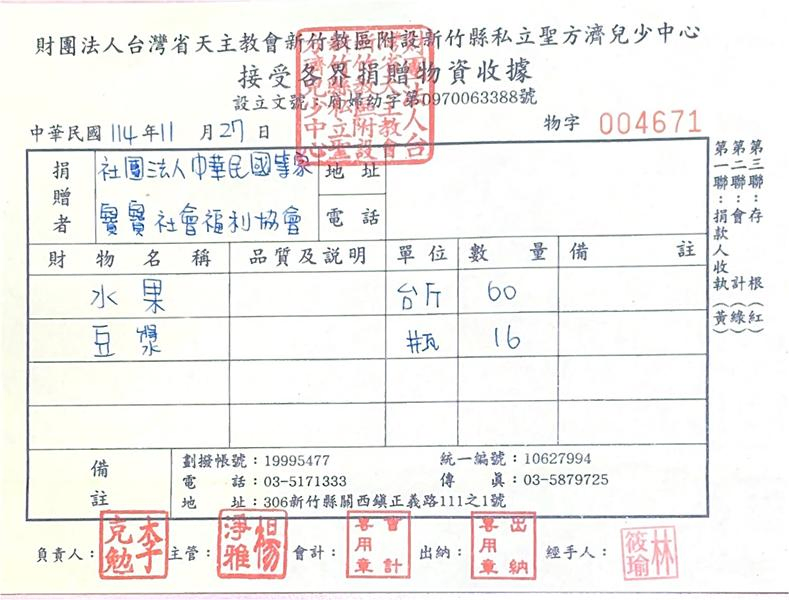 財團法人台灣省天主教會新竹教區附設新竹縣私立聖方濟兒少中心
接受各界捐贈物資收據
設立文號：府婦幼字第0970063388號
中華民國 114 年 11 月 27 日
物字 004671
捐贈者 社團法人中華民國專家寶寶社會福利協會 地址
電話
財物名稱 品質及說明 單位 數量 備註
水果 台斤 60
豆漿 瓶 16
備註
劃撥帳號：19995477 統一編號：10627994
電話：03-5171333 傳真：03-5879725
地址：306新竹縣關西鎮正義路111之1號
負責人：李克勉 主管：楊淨雅 會計：會計專用章 出納：出納專用章 經手人：林筱瑜
第一聯：捐款人收執（黃）
第二聯：會計（綠）
第三聯：存根（紅）
財團法人台灣省天主教會新竹教區附設新竹縣私立聖方濟兒少中心